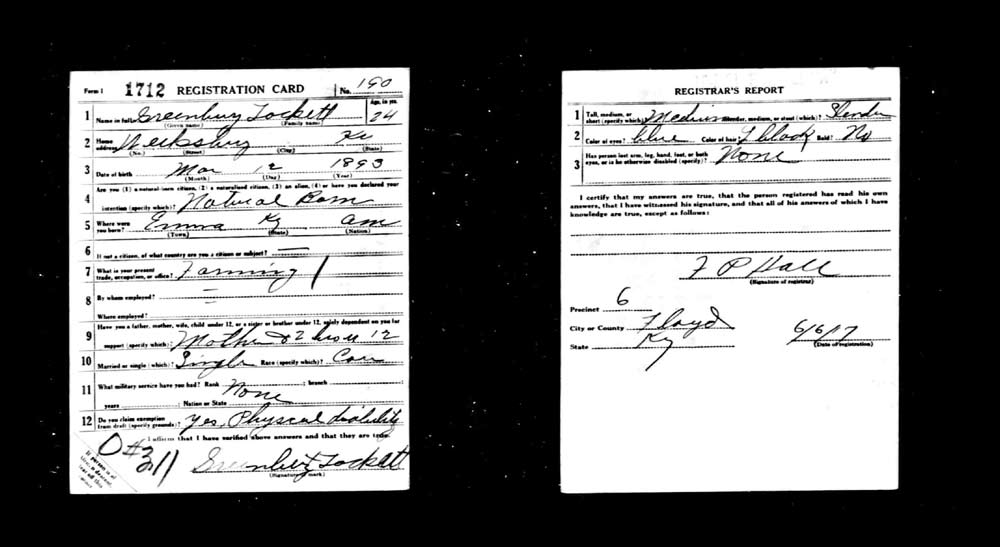 Form 1 1712 REGISTRATION CARD No. 190
1 Name in full Greenbury Lockett Age, in yrs. 24
(Given name) (Family name)
2 Home address Weeksbury Ky
(No.) (Street) (City) (State)
3 Date of birth Mar 12 1893
(Month) (Day) (Year)
Are you (1) a natural-born citizen, (2) a naturalized citizen, (3) an alien, (4) or have you declared your
4 intention (specify which)? Natural Born
5 Where were you born? Emma Ky am
(Town) (State) (Nation)
6 If not a citizen, of what country are you a citizen or subject? —
7 What is your present trade, occupation, or office? Farming
8 By whom employed? —
Where employed?
Have you a father, mother, wife, child under 12, or a sister or brother under 12, solely dependent on you for
9 support (specify which)? Mother & 2 bro u 12
10 Married or single (which)? Single Race (specify which)? Cau
11 What military service have you had? Rank None ; branch ;
years ; Nation or State
12 Do you claim exemption from draft (specify grounds)? Yes, Physical disability
I affirm that I have verified above answers and that they are true.
Greenbury Lockett
(Signature or mark)
REGISTRAR'S REPORT
1 Tall, medium, or short (specify which)? Medium Slender, medium, or stout (which)? Slender
2 Color of eyes? blue Color of hair? black Bald? No
3 Has person lost arm, leg, hand, foot, or both eyes, or is he otherwise disabled (specify)? None
I certify that my answers are true, that the person registered has read his own
answers, that I have witnessed his signature, and that all of his answers of which I have
knowledge are true, except as follows:
F P Hall
(Signature of registrar)
Precinct 6
City or County Floyd
State Ky 6/6/17
(Date of registration)